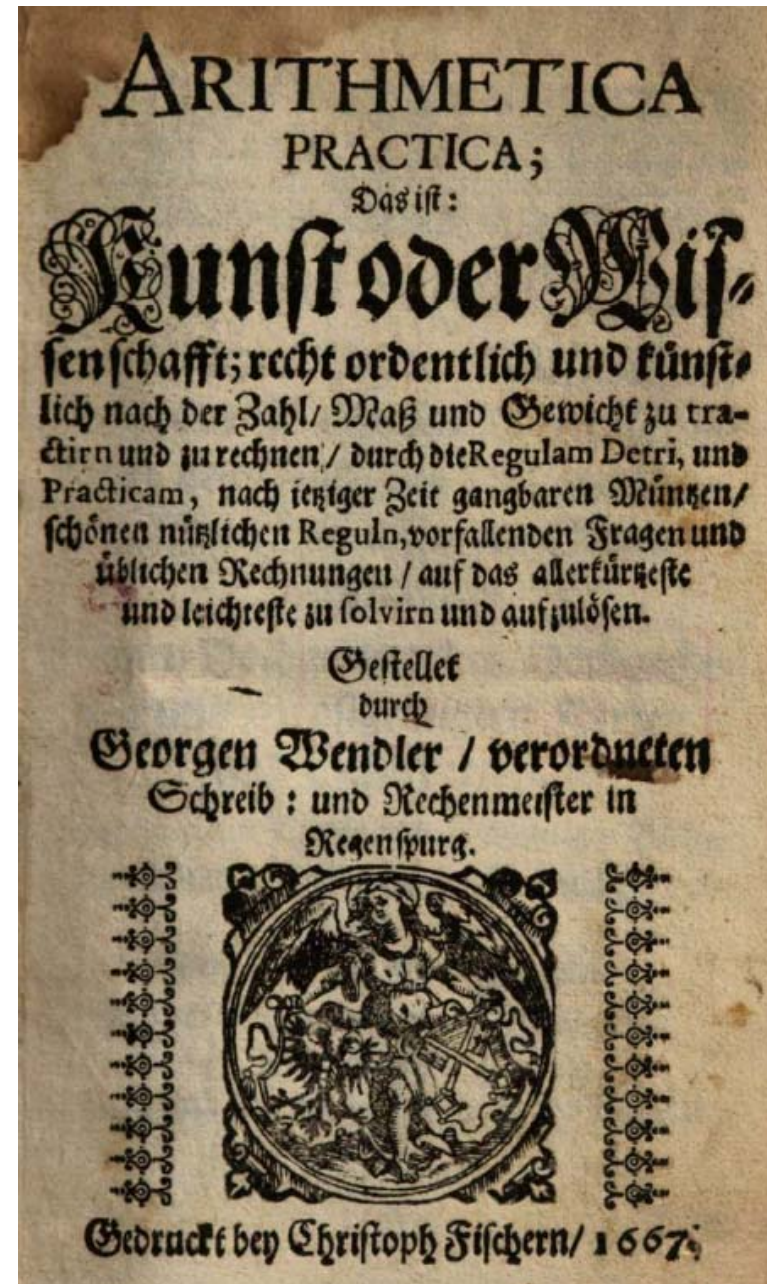 ARITHMETICA
PRACTICA;
Das ist:
Kunst oder Wis-
senschafft; recht ordentlich und künst-
lich nach der Zahl/ Maß und Gewicht zu tra-
ctirn und zu rechnen/ durch die Regulam Detri, und
Practicam, nach ietziger Zeit gangbaren Müntzen/
schönen nützlichen Reguln, vorfallenden Fragen und
üblichen Rechnungen/ auf das allerkürtzeste
und leichteste zu solvirn und aufzulösen.
Gestellet
durch
Georgen Wendler / verordneten
Schreib: und Rechenmeister in
Regenspurg.
Gedruckt bey Christoph Fischern/ 1667.